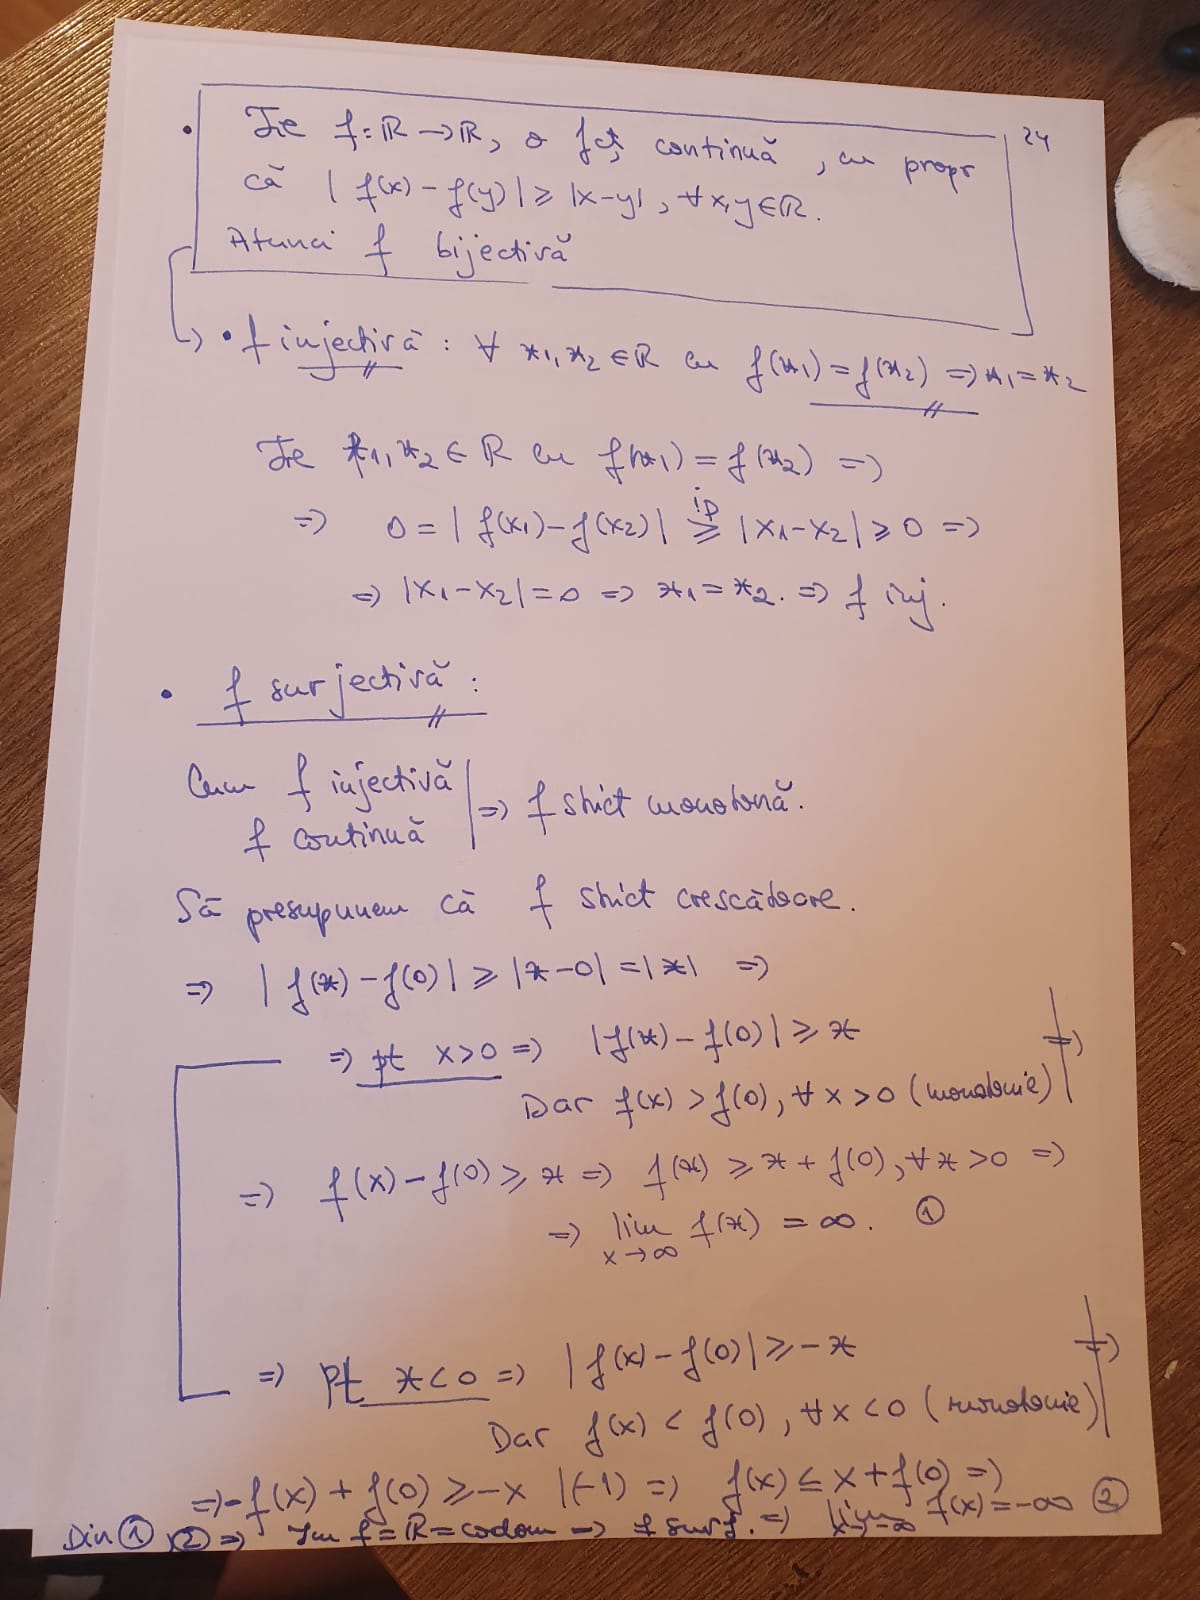 24
• Fie f: ℝ → ℝ, o fcț continuă, cu propr
că |f(x) - f(y)| ≥ |x-y|, ∀ x,y ∈ ℝ.
Atunci f bijectivă
↳ • f injectivă : ∀ x₁, x₂ ∈ ℝ cu f(x₁) = f(x₂) => x₁ = x₂
Fie x₁, x₂ ∈ ℝ cu f(x₁) = f(x₂) =>
=> 0 = |f(x₁) - f(x₂)| ≥ (ip) |x₁-x₂| ≥ 0 =>
=> |x₁-x₂| = 0 => x₁ = x₂. => f inj.
• f surjectivă :
Cum f injectivă
f continuă | => f strict monotonă.
Să presupunem că f strict crescătoare.
=> |f(x) - f(0)| ≥ |x-0| = |x| =>
=> pt x>0 => |f(x) - f(0)| ≥ x
Dar f(x) > f(0), ∀ x > 0 (monotonie) | =>
=> f(x) - f(0) ≥ x => f(x) ≥ x + f(0), ∀ x > 0 =>
=> lim x→∞ f(x) = ∞. ①
=> pt x<0 => |f(x) - f(0)| ≥ -x
Dar f(x) < f(0), ∀ x < 0 (monotonie) | =>
=> -f(x) + f(0) ≥ -x |(-1) => f(x) ≤ x + f(0) =>
=> lim x→-∞ f(x) = -∞ ②
Din ① ② => Im f = ℝ = codom => f surj.